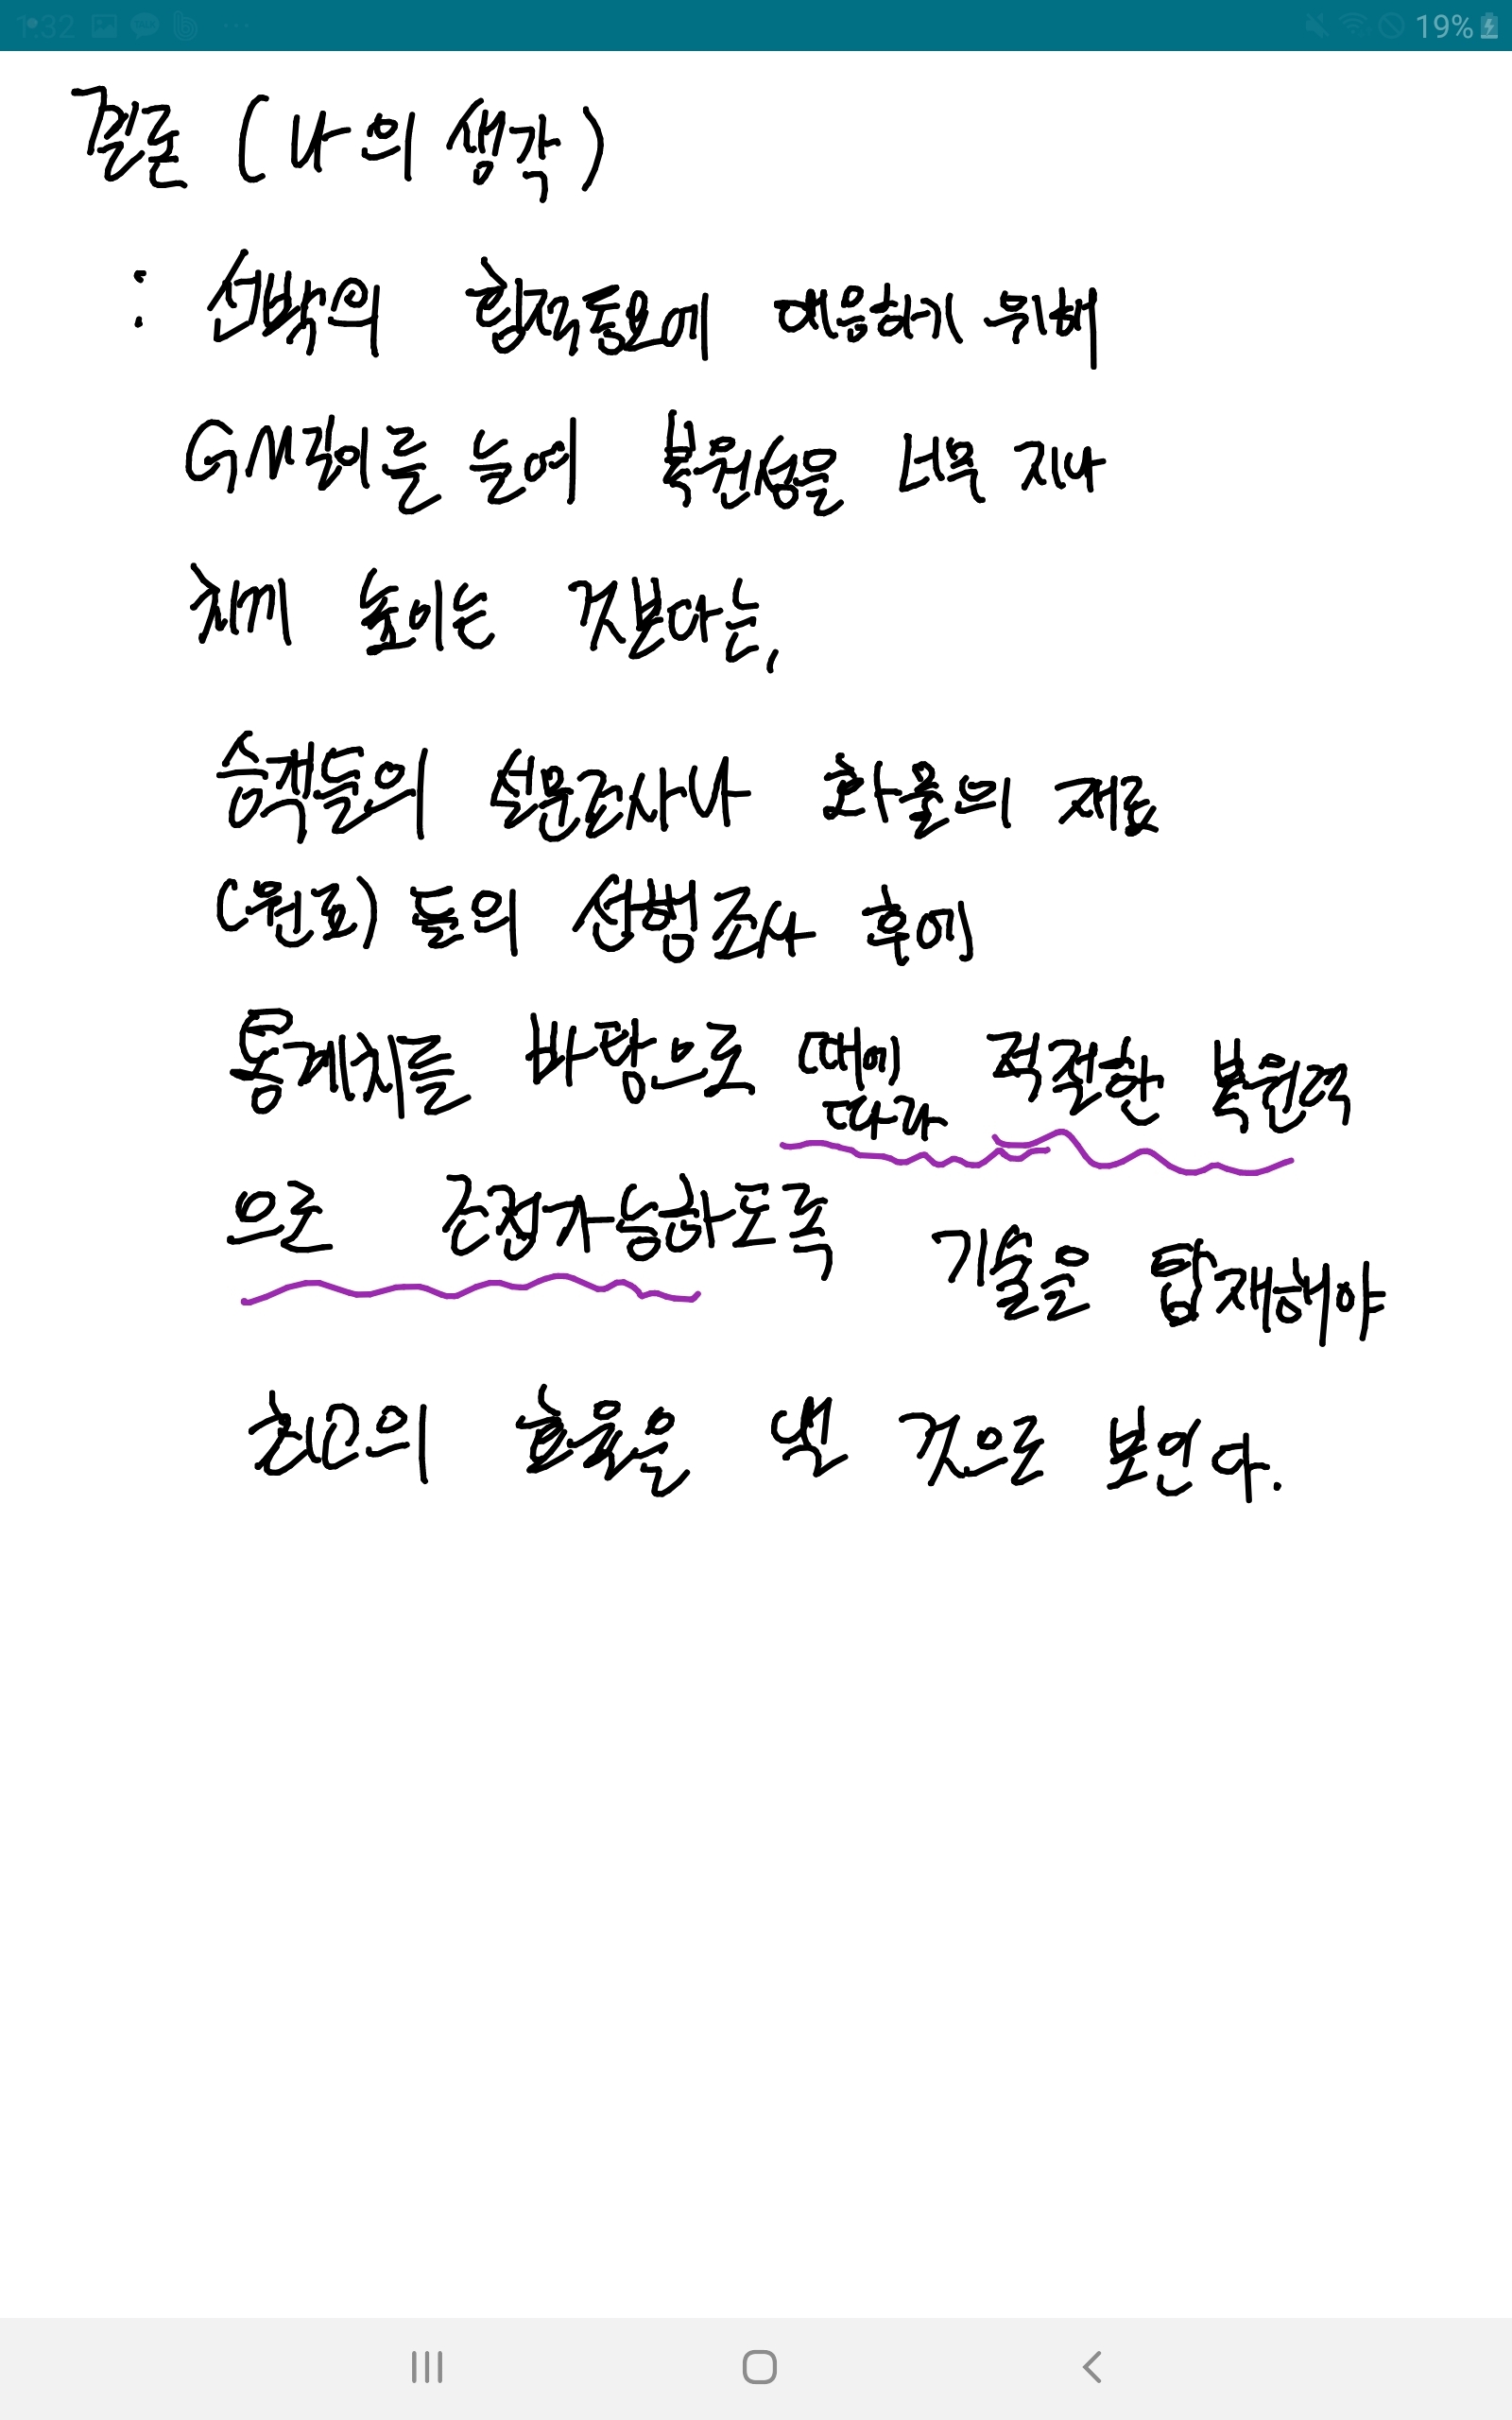 1:32 19%
결론 (나의 생각)
: 선박의 횡적동요에 대응하기 위해
GM길이를 늘여 복원성을 너무 지나
치게 높이는 것보다는,
승객들의 설문조사나 화물의 재료
(원료)들의 선행조사 후에
통계치를 바탕으로 때에 따라 적절한 복원력
으로 조정가능하도록 기술을 탑재해야
최고의 효율을 낼 것으로 보인다.